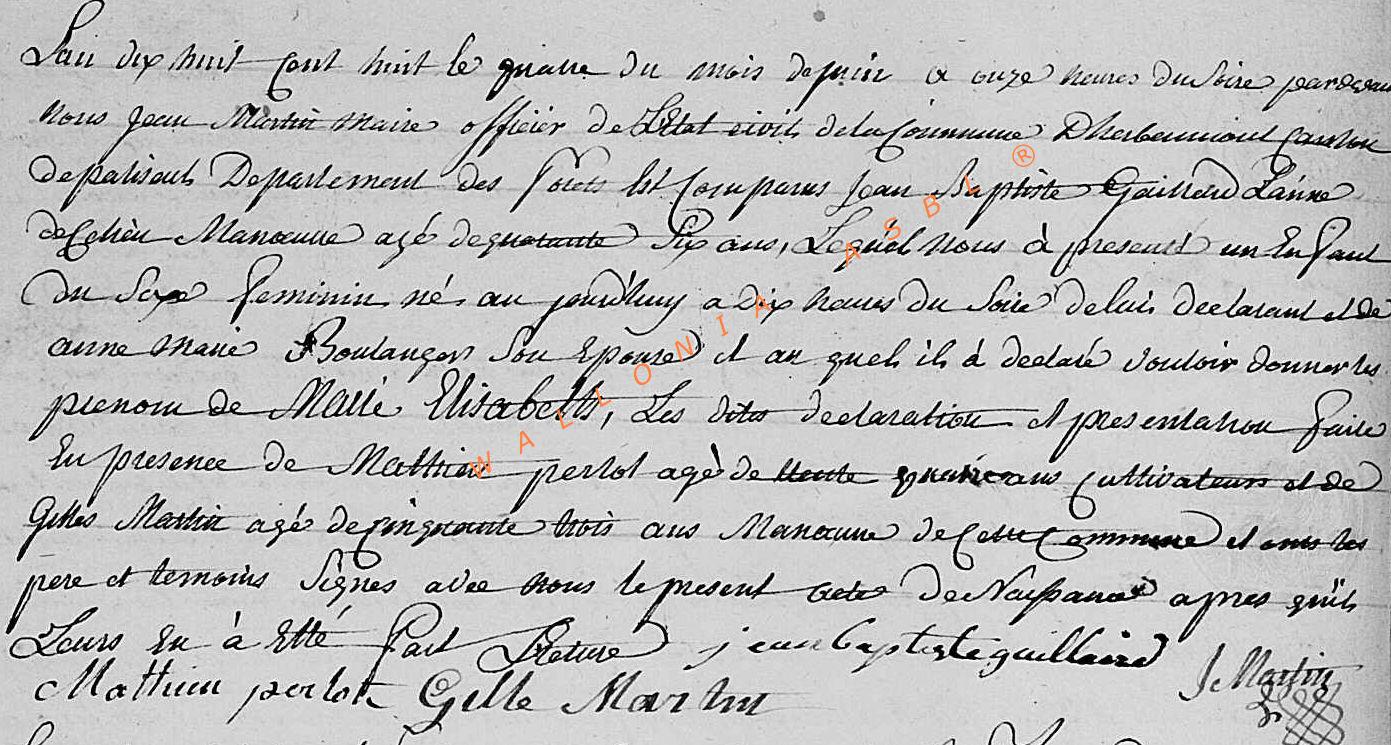 L'an dix huit cent huit le quatre du mois de juin a onze heures du soire pardevant
nous Jean Martin Maire officier de L'Etat civil de la Commune D'herbeumont Canton
de paliseul Departement des forets Est Comparus Jean Baptiste Gaillard L'ainé
de Ce lieu Manoeuvre agé de quarante Six ans, Lequel nous à presenté un Enfant
du Sexe feminin né au jourd'huy a Dix heures du Soire de luis declarant et de
anne Marie Boulanger Son Epouse et au quel il à declaré vouloir donner les
prenom de Marie Elisabeth, Les dites declaration et presentation faite
En presence de Mathieu perlot agé de trente quatre ans Cultivateur et de
Gilles Martin agé de Cinquante trois ans Manoeuvre de Cette Commune et onts les
pere et temoins Signes avec nous le present acte de Naissance apres qu'il
Leurs En à Etté fait Lecture jean baptiste guillaird J. Martin
Mathieu perlot Gille Martin
WALLONIA ASBL ®